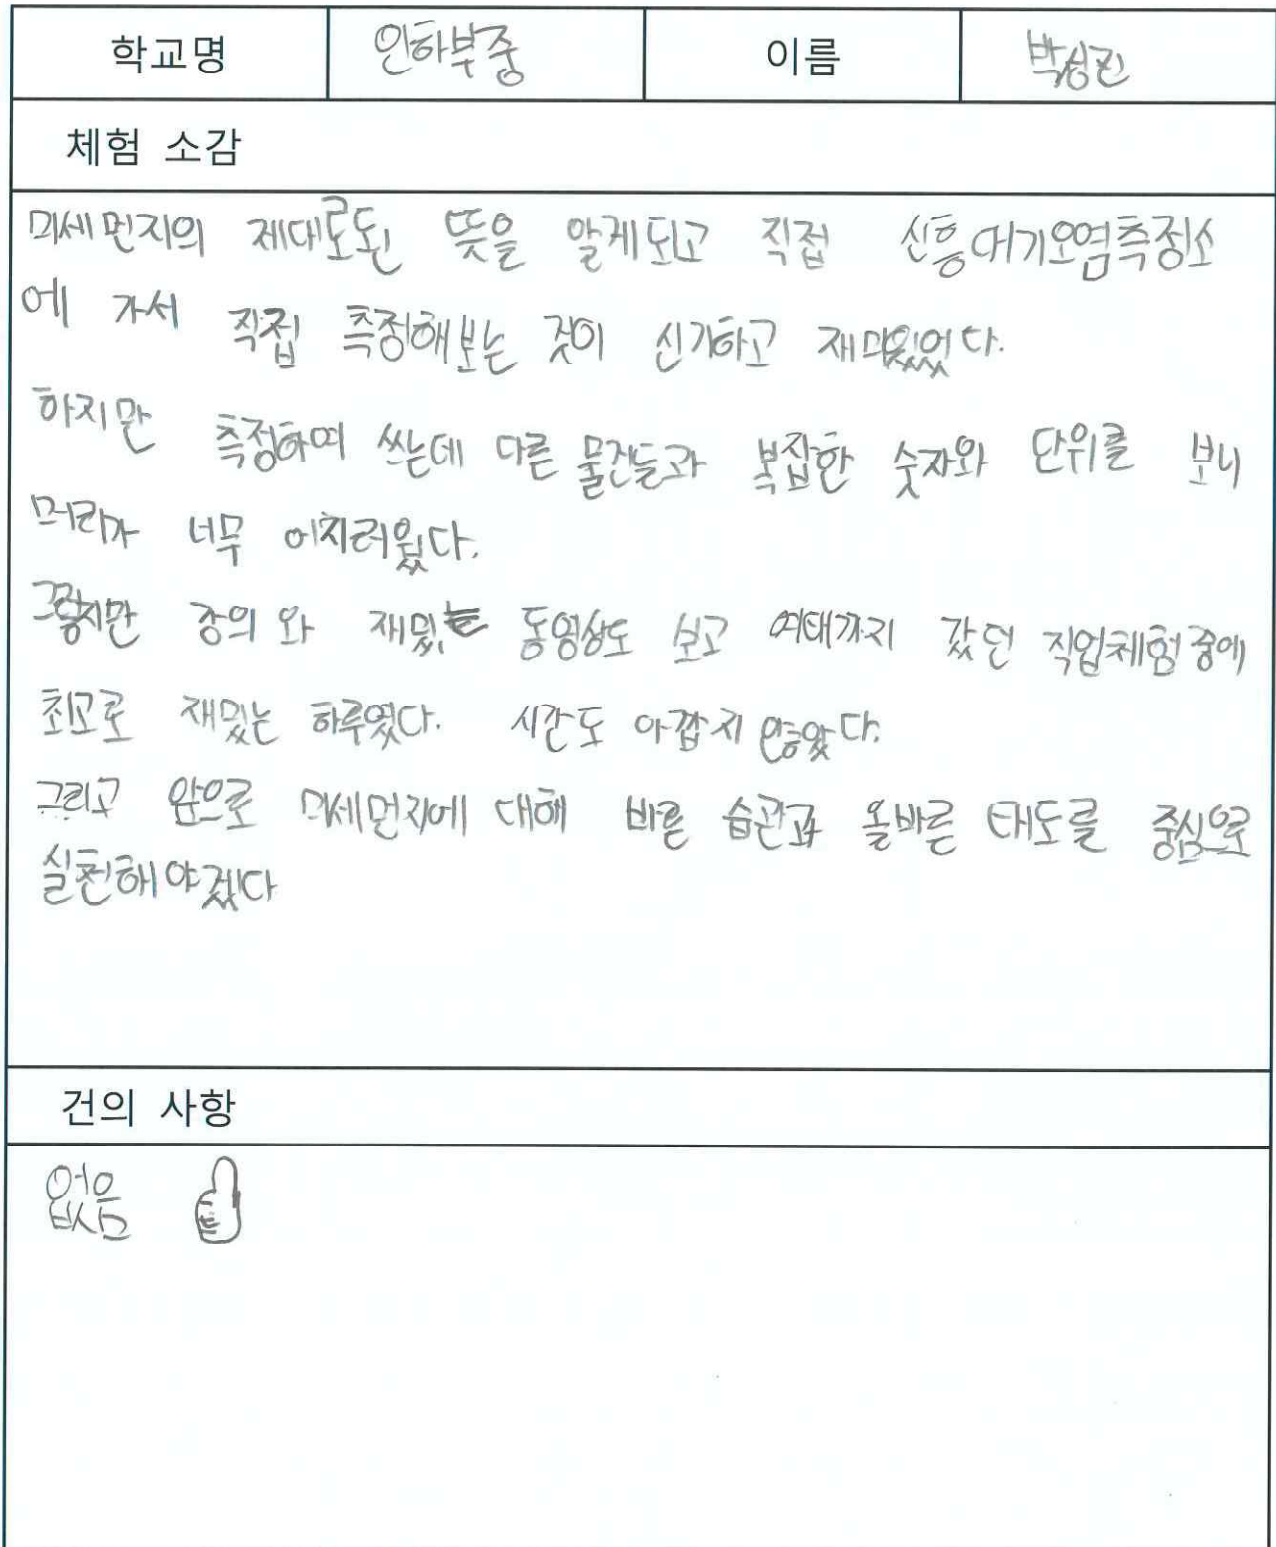 학교명 인하부중 이름 박성진
체험 소감
미세먼지의 제대로된 뜻을 알게되고 직접 신흥대기오염측정소
에 가서 직접 측정해보는 것이 신기하고 재미있었다.
하지만 측정하며 쓰는데 다른 물건들과 복잡한 숫자와 단위를 보니
머리가 너무 어지러웠다.
그렇지만 강의와 재밌는 동영상도 보고 여태까지 갔던 직업체험중에
최고로 재밌는 하루였다. 시간도 아깝지 않았다.
그리고 앞으로 미세먼지에 대해 바른 습관과 올바른 태도를 중심으로
실천해야겠다
건의 사항
없음